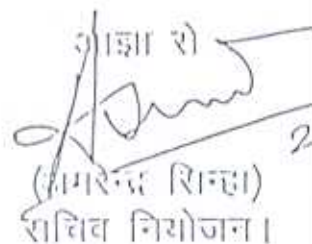 आज्ञा से
(अमरेन्द्र सिन्हा)
सचिव नियोजन।